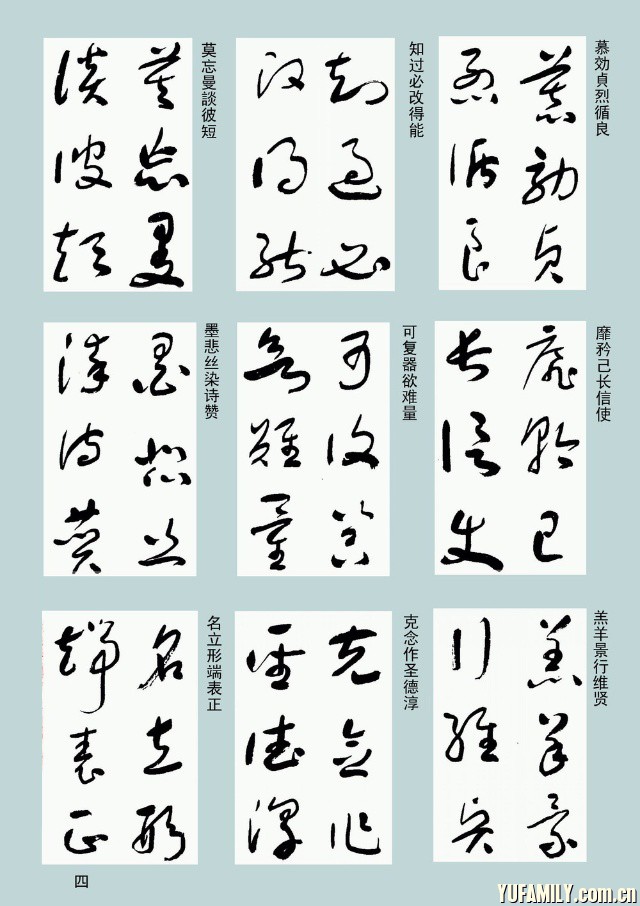 慕効貞烈循良
慕効貞
烈循良
知过必改得能
知過必
改得能
莫忘曼談彼短
莫忘曼
談彼短
靡矜己长信使
靡矜己
長信使
可复器欲难量
可復器
欲難量
墨悲丝染诗赞
墨悲絲
染詩讚
羔羊景行维贤
羔羊景
行維賢
克念作圣德淳
克念作
聖德淳
名立形端表正
名立形
端表正
四
YUFAMILY.com.cn